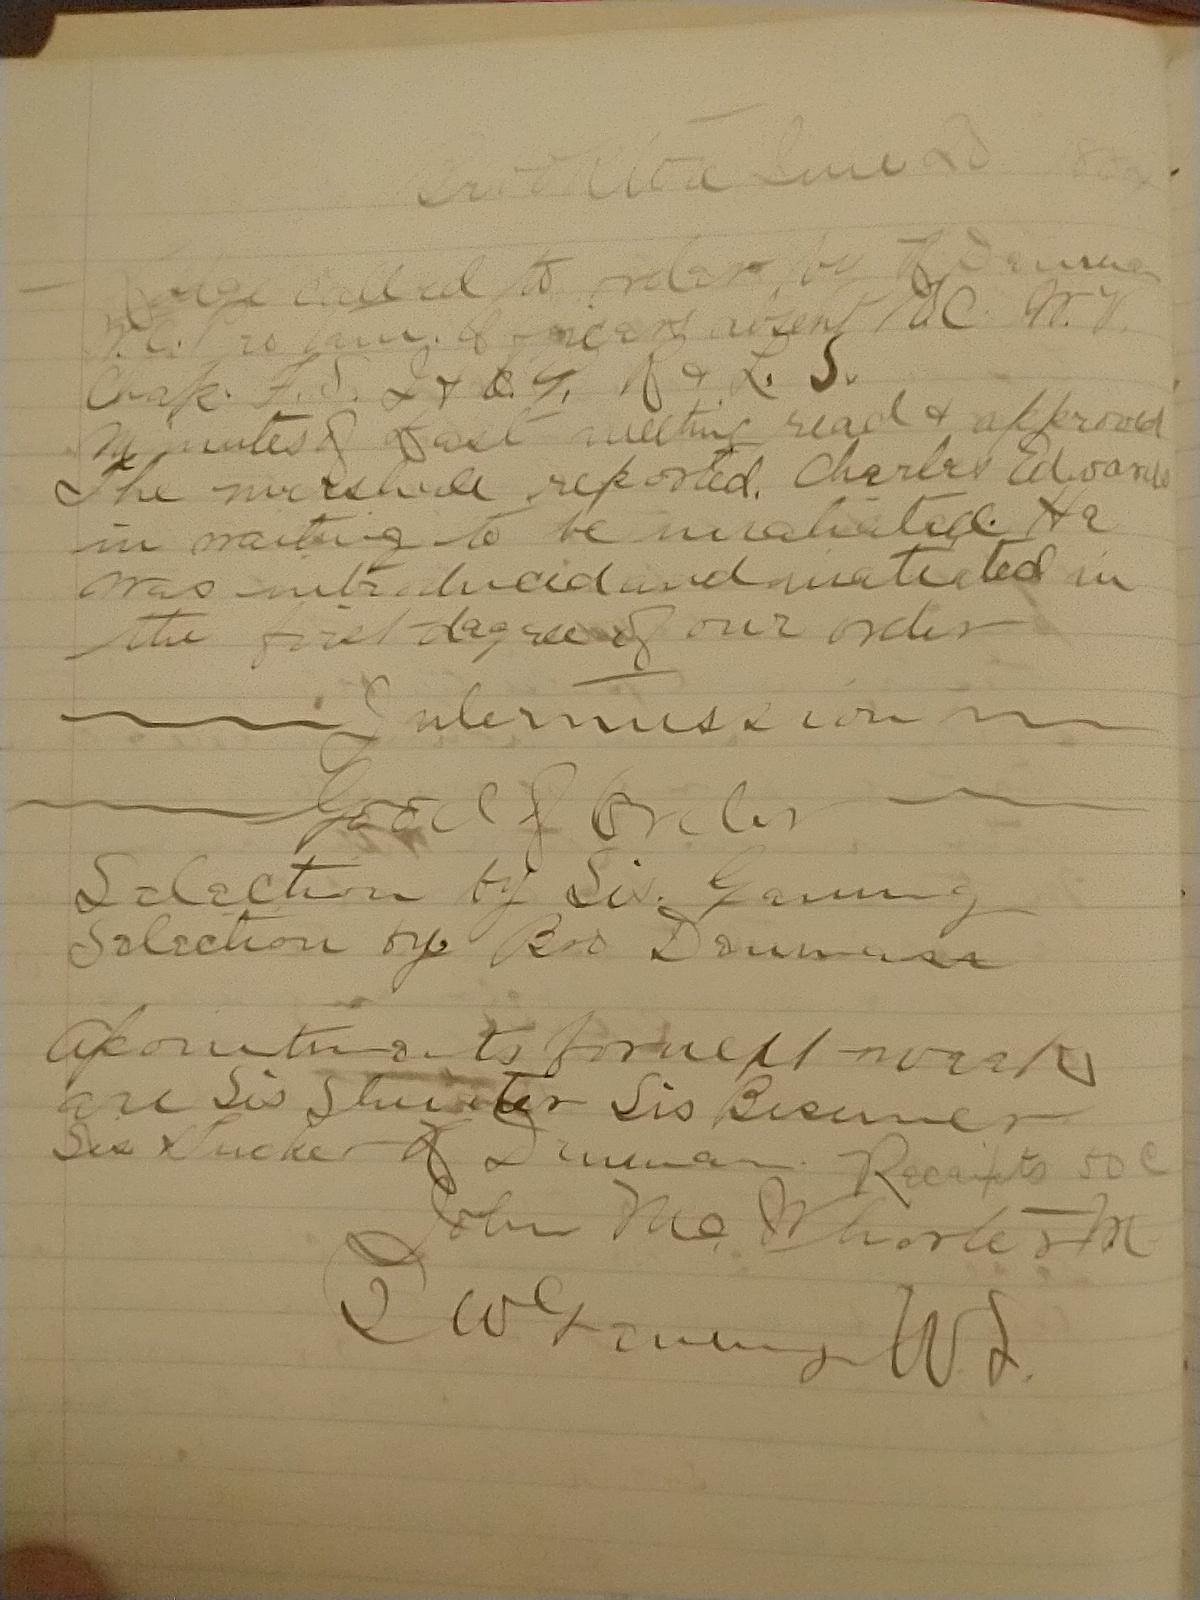 June 20
Lodge called to order by
Pro tem. Officers absent W.C. W.V.
Chap. F.S. I & O.G. R & L. S.
Minutes of last meeting read & approved
The marshall reported. Charles Edwards
in waiting to be iniatiated. He
was introduced and iniatiated in
the first degree of our order
Intermission
Good of Order
Selection by Sis. Ganung
Selection by Bro Denman
Apointments for next week
are Sis Sis
Sis Tucker Denman. Receipts 50 C
John McWhorter M
W Ganung W.S.